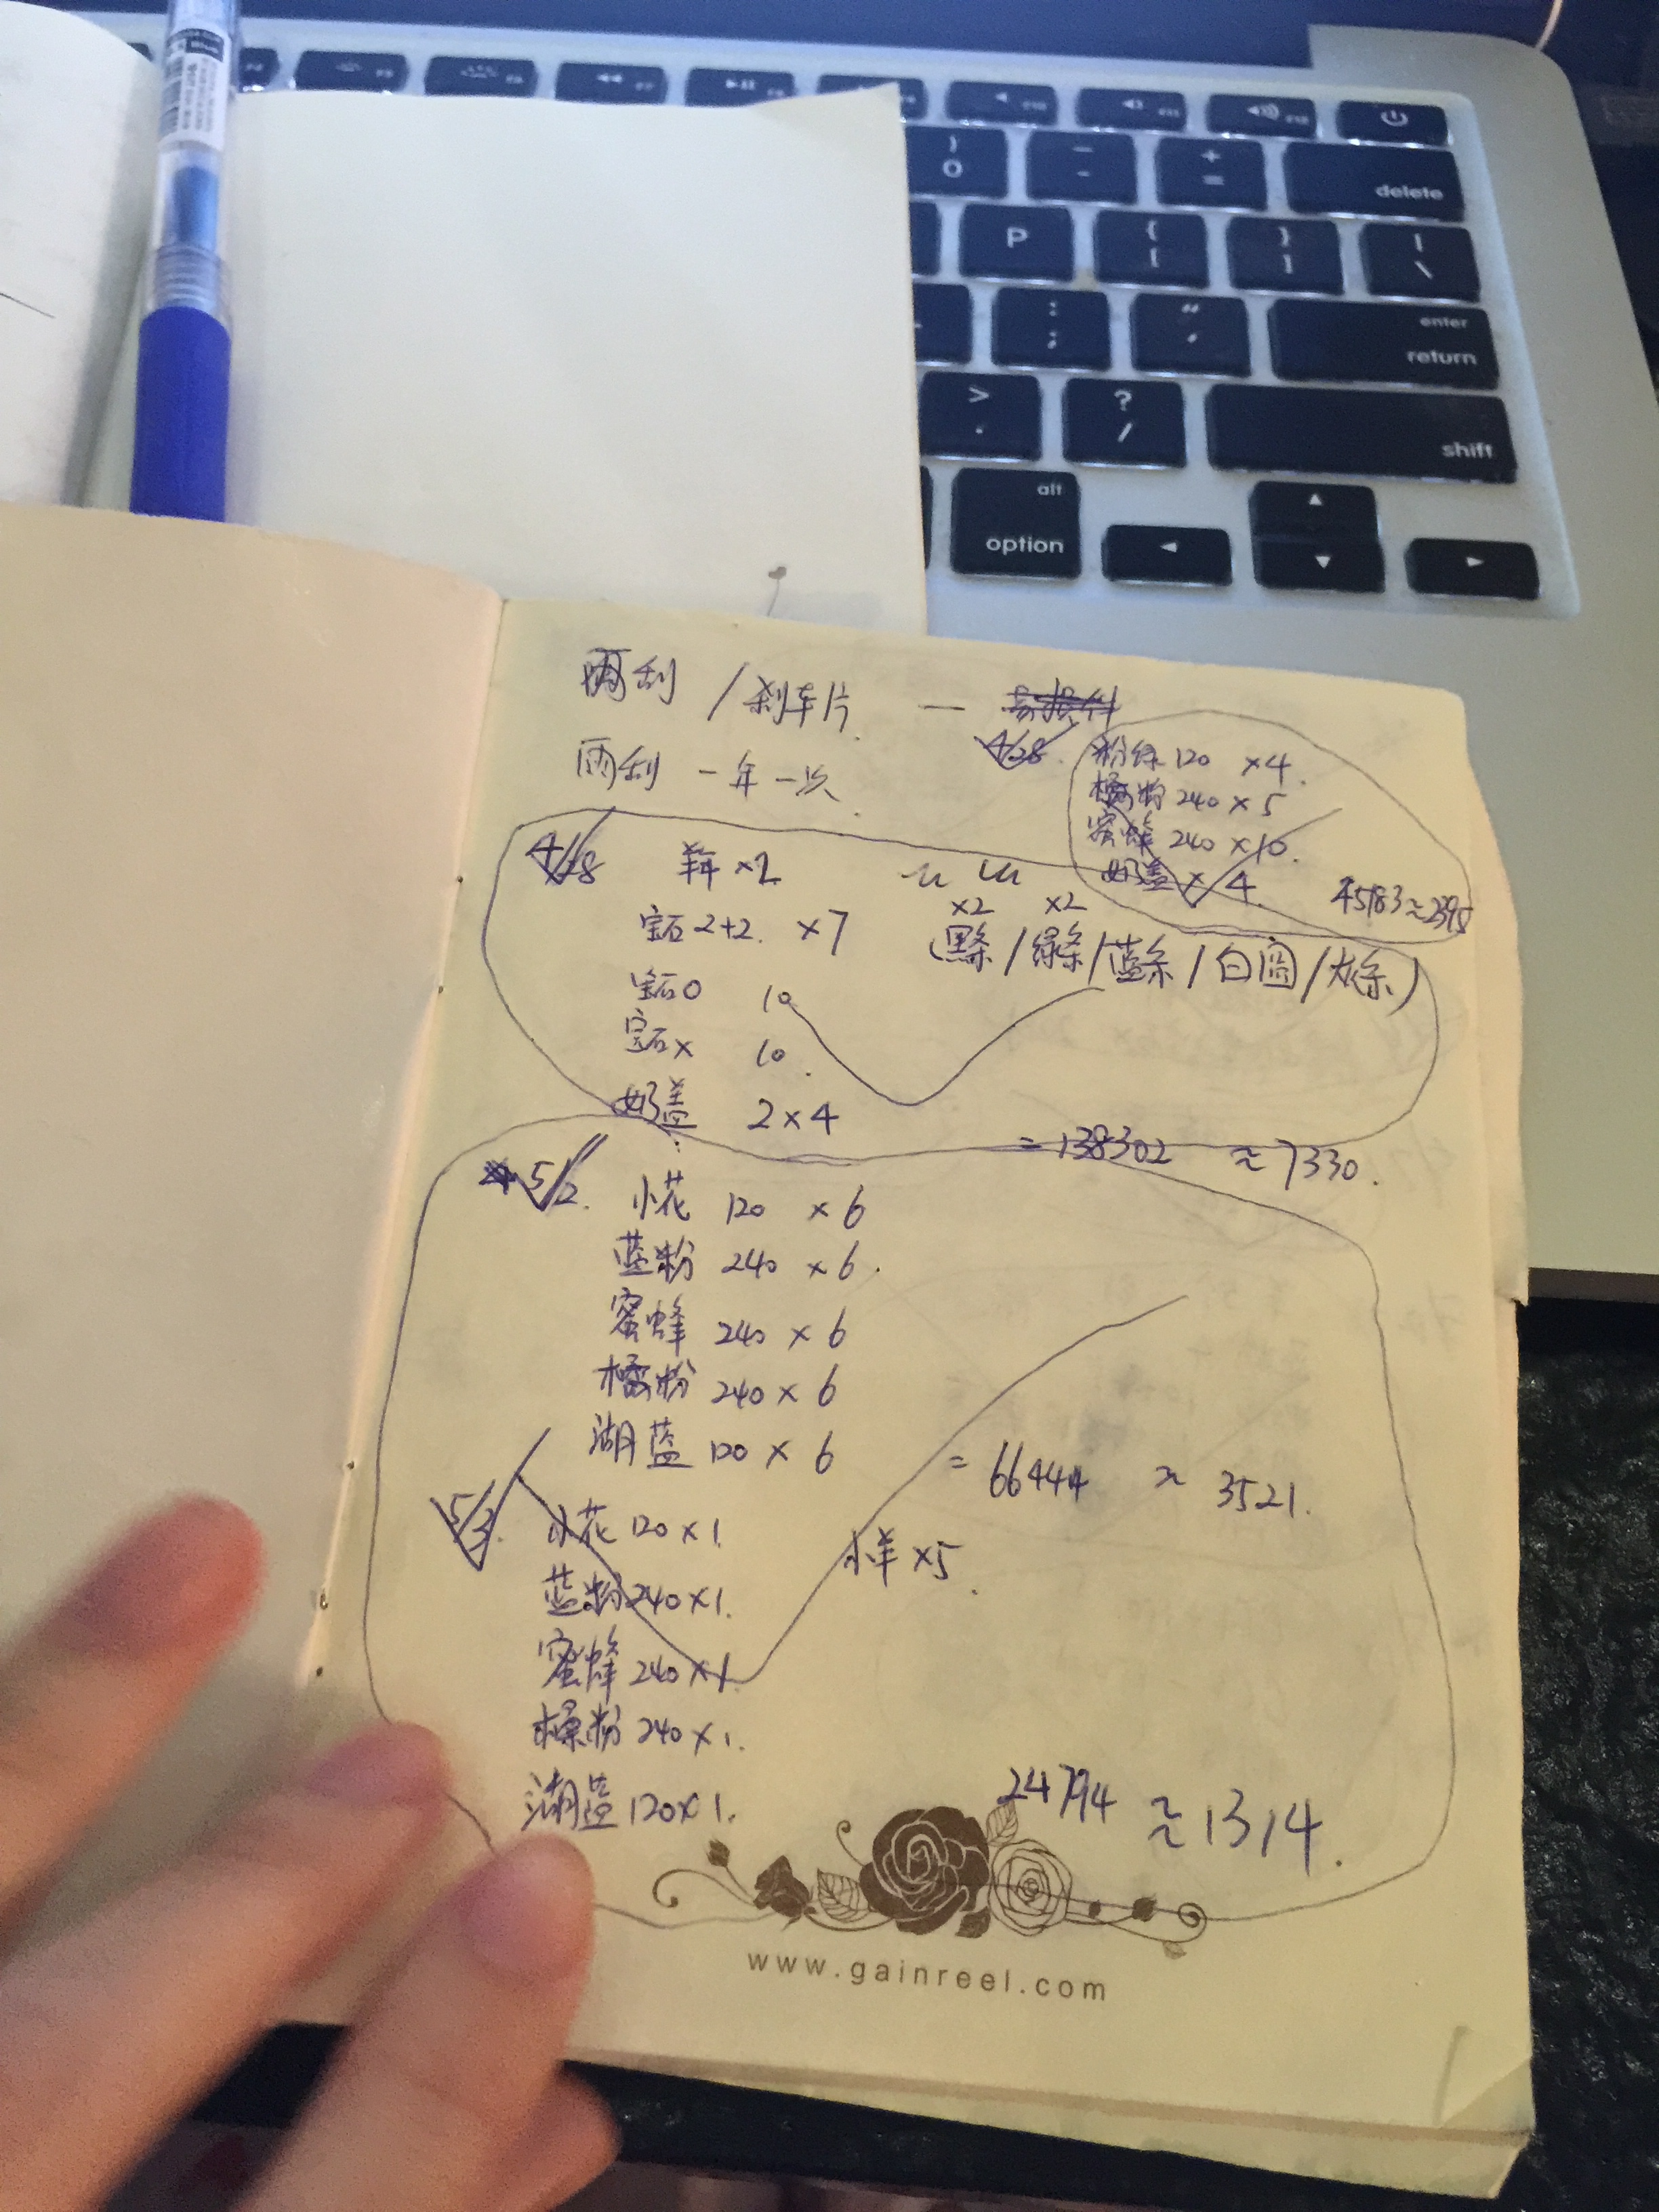 雨刮 /刹车片 — 易损件
雨刮 一年一次
4/28
粉绿 120 ×4.
橘粉 240 ×5
蜜蜂 240 ×10.
奶盖 × 4.
45183≈2395
4/28
×2
宝石2+2. ×7
×2 ×2
(黑条/绿条/蓝条/白圆/灰条)
宝石O 10
宝石× 10.
奶盖 2×4
=138302 ≈7330.
5/2. 小花 120 ×6
蓝粉 240 ×6.
蜜蜂 240 ×6
橘粉 240 ×6
湖蓝 120 ×6
= 66444 ≈ 3521.
5/3. 小花 120×1.
小样 ×5.
蓝粉 240×1.
蜜蜂 240×1.
橘粉 240×1.
湖蓝 120×1.
24794 ≈1314.
www.gainreel.com
delete
P
enter
return
shift
alt
option